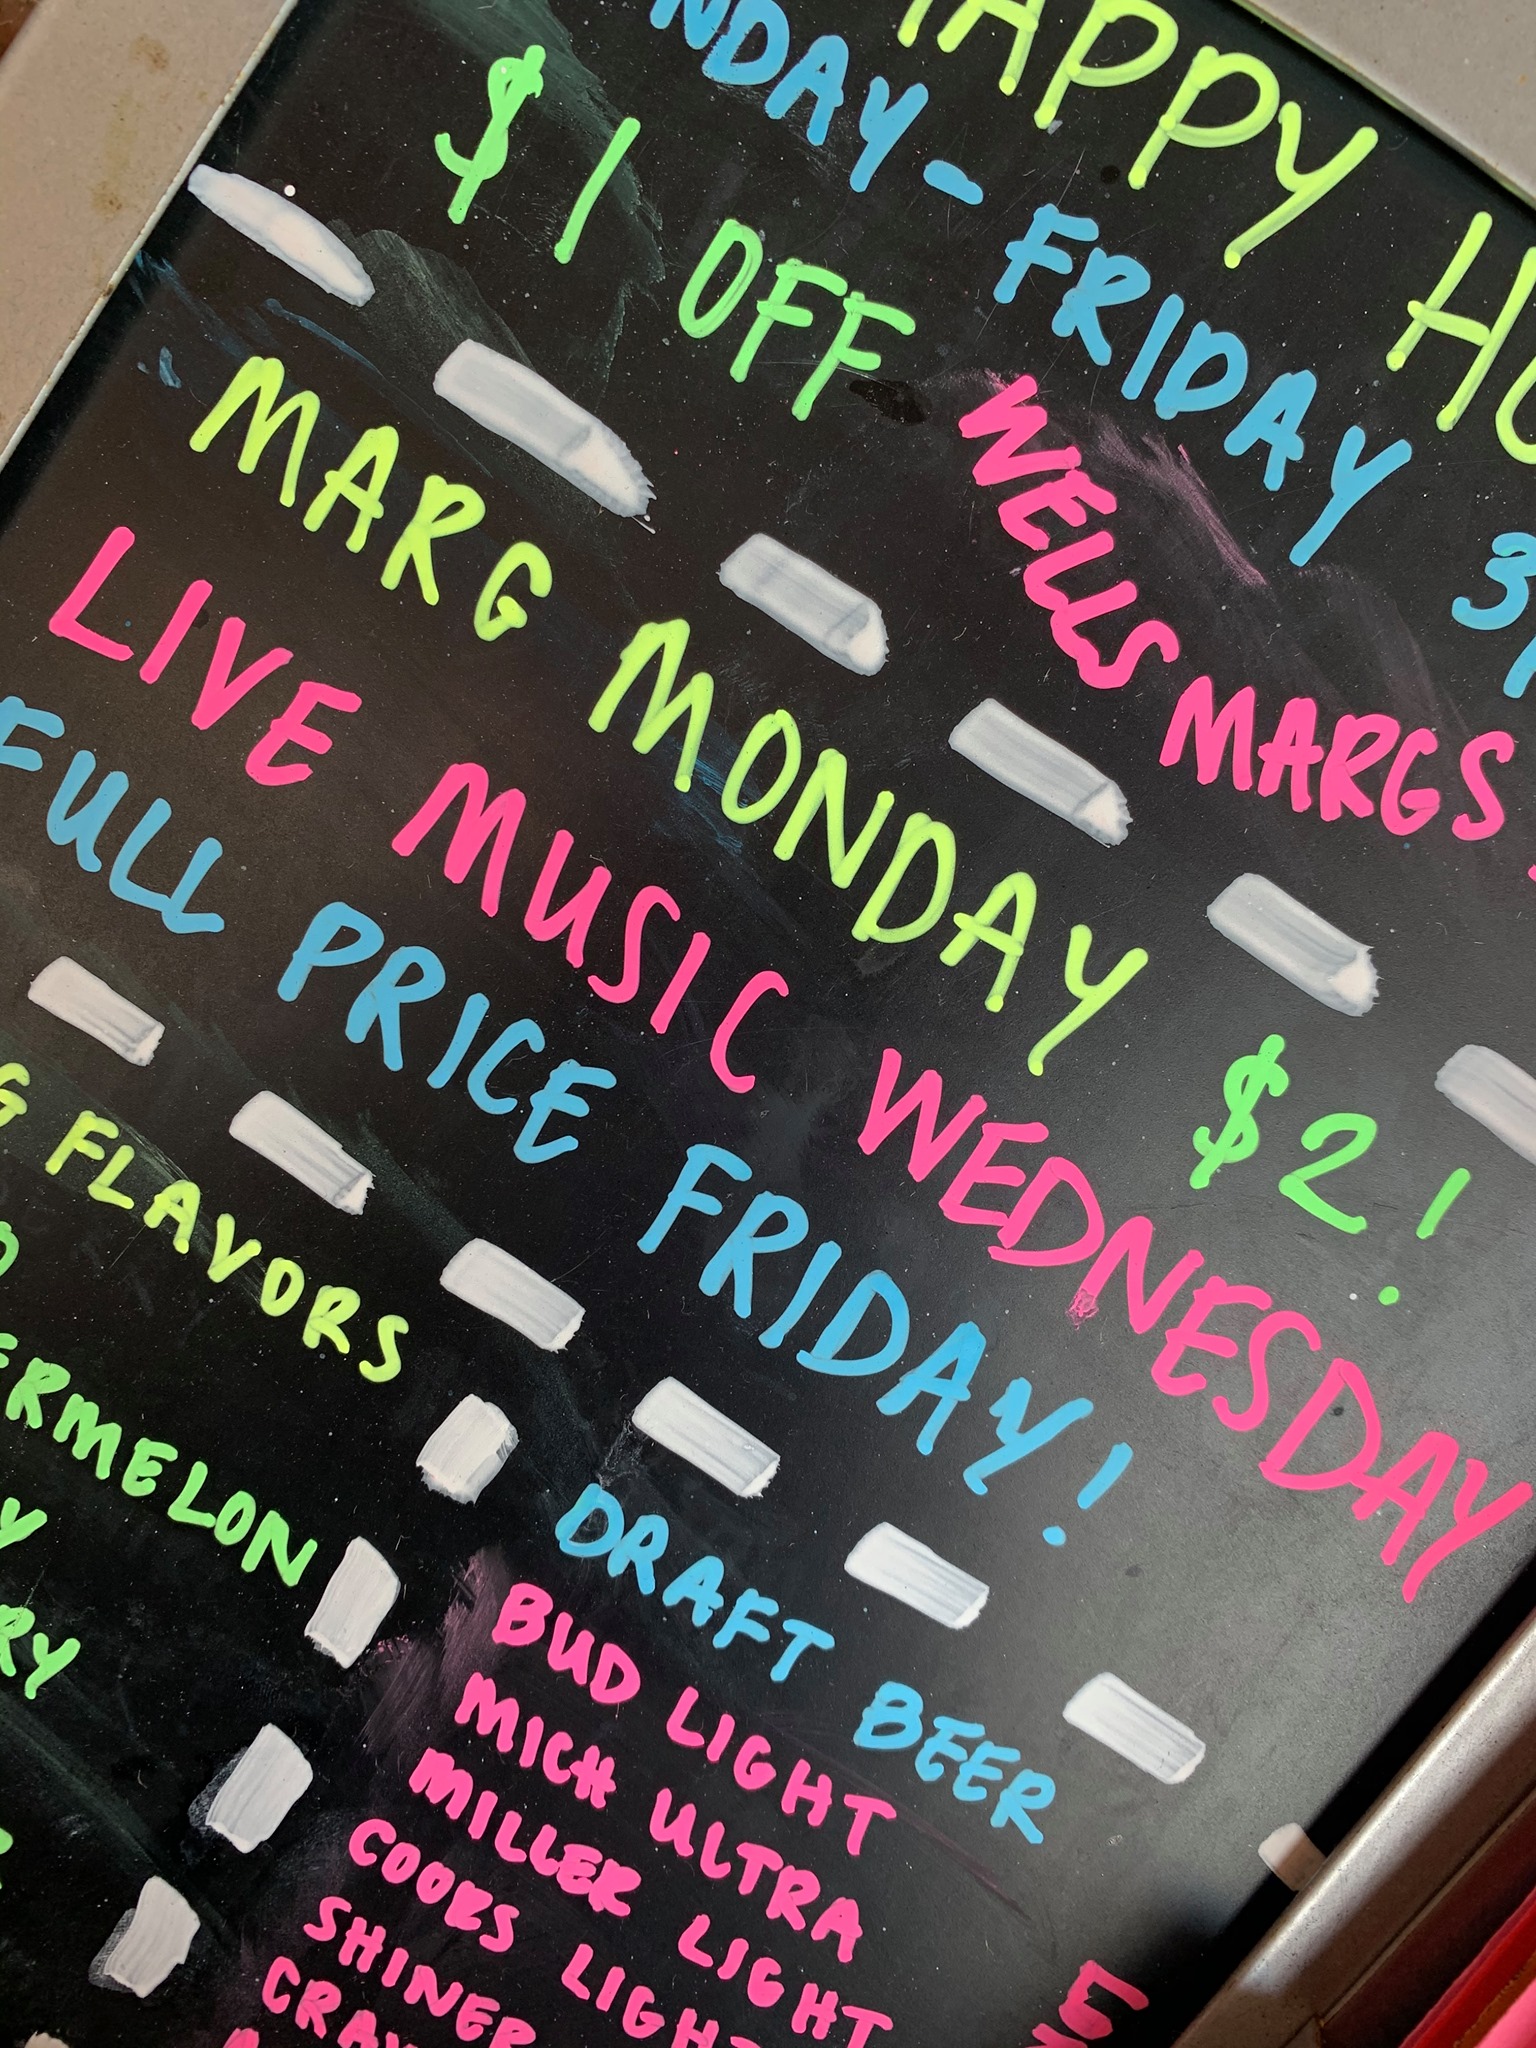 HAPPY HO
NDAY - FRIDAY 3
$1 OFF WELLS MARGS
MARG MONDAY $2!
LIVE MUSIC WEDNESDAY
FULL PRICE FRIDAY!
G FLAVORS
ERMELON
Y
RY
DRAFT BEER
BUD LIGHT
MICH ULTRA
MILLER LIGHT
COORS LIGHT
SHINER
CRAW